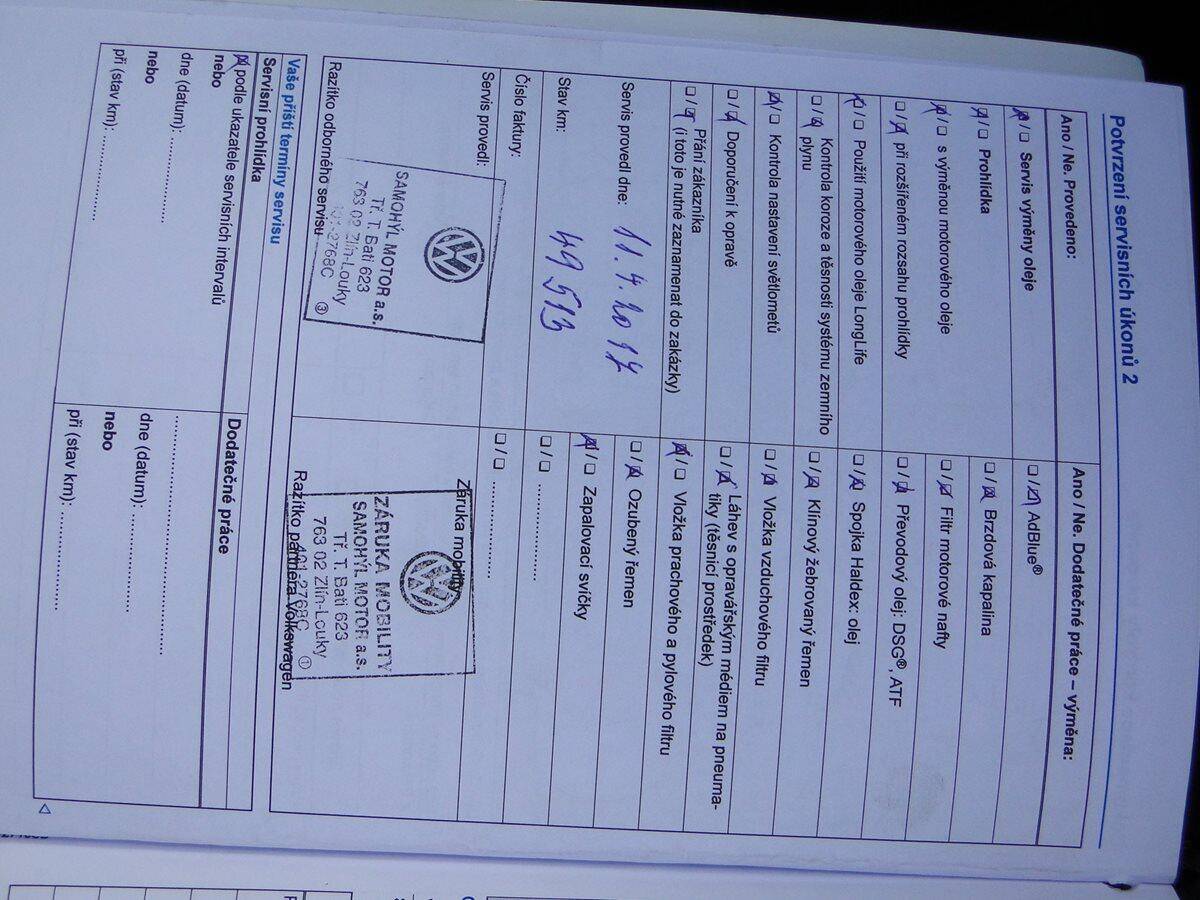 Potvrzení servisních úkonů 2
Ano / Ne. Provedeno:
☒/☐ Servis výměny oleje
☒/☐ Prohlídka
☒/☐ s výměnou motorového oleje
☐/☒ při rozšířeném rozsahu prohlídky
☒/☐ Použití motorového oleje LongLife
☐/☒ Kontrola koroze a těsnosti systému zemního
plynu
☒/☐ Kontrola nastavení světlometů
☐/☒ Doporučení k opravě
☐/☒ Přání zákazníka
(i toto je nutné zaznamenat do zakázky)
Servis provedl dne: 11.4.2017
Stav km: 49 513
Číslo faktury:
Servis provedl:
SAMOHÝL MOTOR a.s.
Tř. T. Bati 623
763 02 Zlín-Louky
401-2768C ③
Razítko odborného servisu
Ano / Ne. Dodatečné práce – výměna:
☐/☒ AdBlue®
☐/☒ Brzdová kapalina
☐/☒ Filtr motorové nafty
☐/☒ Převodový olej: DSG®, ATF
☐/☒ Spojka Haldex: olej
☐/☒ Klínový žebrovaný řemen
☐/☒ Vložka vzduchového filtru
☐/☒ Láhev s opravářským médiem na pneuma-
tiky (těsnicí prostředek)
☒/☐ Vložka prachového a pylového filtru
☐/☒ Ozubený řemen
☒/☐ Zapalovací svíčky
☐/☐ ...............
☐/☐ ...............
Záruka mobility
ZÁRUKA MOBILITY
SAMOHÝL MOTOR a.s.
Tř. T. Bati 623
763 02 Zlín-Louky
401-2768C ①
Razítko partnera Volkswagen
Vaše příští termíny servisu
Servisní prohlídka
☒ podle ukazatele servisních intervalů
nebo
dne (datum): ...............
nebo
při (stav km): ...............
Dodatečné práce
...............
dne (datum): ...............
nebo
při (stav km): ...............